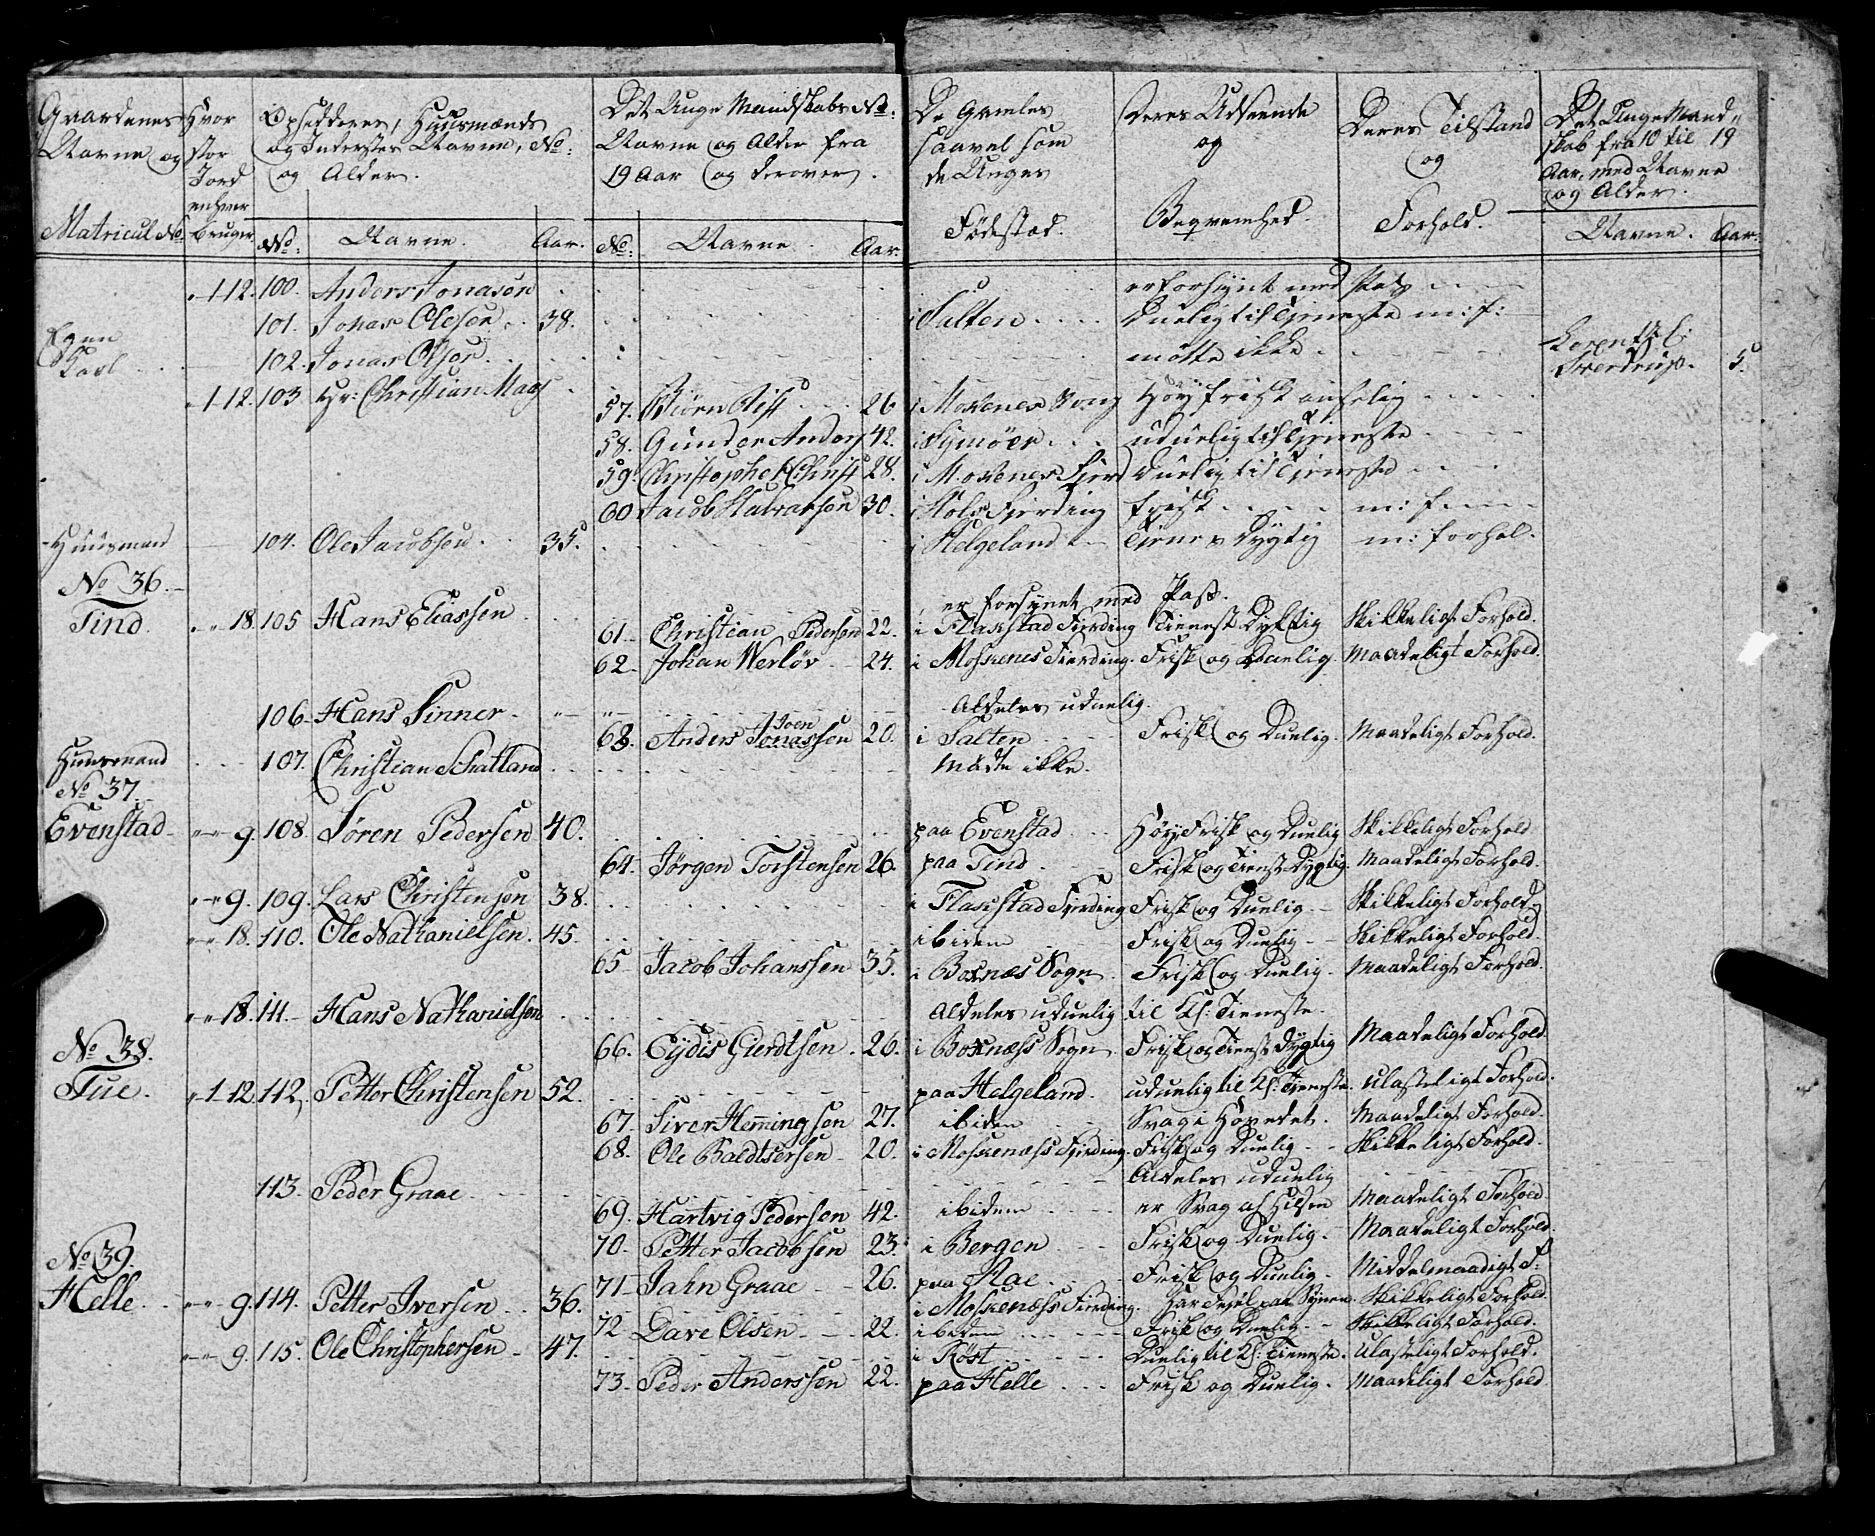 Gaardenes Navne og Matricul No. | Hvor stor Jord enhver bruger | Opsiddernes, Huusmænds og Indersters Navne, No: og Alder. | Det Unge Mandskabs No: Navne og Alder fra 19 Aar og derover. | De Gamles saavel som de Unges Fødestæd. | Deres Udseende og Beqvemhed. | Deres Tilstand og Forhold. | Det Unge Mandskab fra 10 til 19 Aar, med Navne og Alder.
No: | Navne. | Aar. | No: | Navne. | Aar. | Navne. | Aar.
" 1 12. 100. Anders Jonasen
er forsynt med Pas
101. Johan Olesen 38. i Salten Duelig til Tjeneste m: f:
102. Jonas Olsen. møtte ikke
" 1 12. 103 Hr: Christian
57. Biørn 26 i Moskenes Sogn Høy frisk anselig
58. Gunder Anders 42. udueligt til Tjeneste
59. Christopher Christ 28. i Moskenes Fierd Duelig til Tjeneste
60 Jacob Halvarsen 30. i Hols Fierding frisk m: f.
Huusmand 104. Ole Jacobsen 35. i Helgeland Tiene Dygtig m: forhol.
No 36.
Tind. " " 18. 105 Hans Eliassen er forsynet med Pass.
61 Christian Pedersen 22. i Flakstad Fierding Tienest Dyktig Skikkeligt Forhold.
62 Johan Werløv 24. i Moskenes Fierding. Frisk og Duelig. Maadeligt Forhold.
106. Hans Sinner. Aldeles uduelig.
63. Anders Joenssen 20. i Salten Frisk og Duelig. Maadeligt Forhold.
Huusmand 107. Christian Schatland Mødte ikke.
No 37.
Evenstad " " 9. 108. Søren Pedersen 40. paa Evenstad Høy Frisk og Duelig Skikkeligt Forhold
64. Jørgen Torstensen 26. paa Tind Frisk og Tienest Dygtig. Maadeligt Forhold.
" " 9. 109. Lars Christensen 38. i Flakstad Fierding Frisk og Duelig. Skikkeligt Forhold
" " 18. 110. Ole Nathanielsen. 45. ibidem Frisk og Duelig Skikkeligt Forhold.
65 Jacob Johanssen 35. i Boxnæs Sogn. Frisk og Duelig. Maadeligt Forhold.
" " 18. 111. Hans Nathanielsen Aldeles uduelig til Kl: Tieneste.
66. Eydis Gierdtsen. 26. i Boxnæss Sogn Frisk og Tienest Dygtig Maadeligt Forhold.
No 38.
Tue. " 1 12 112, Petter Christensen 52. paa Helgeland. uduelig til Kl: Tieneste. Ulasteligt Forhold.
67. Siver Hemingsen 27. ibidem Svag i Hovedet. Maadeligt Forhold.
68. Ole Baldtsersen 20. i Moskenæss Fierding. Frisk og Duelig Skikkeligt Forhold.
113. Peder Graae Aldeles uduelig
69. Hartvig Pedersen 42. ibidem er Svag af Hilsen Maadeligt Forhold
70. Petter Jacobsen 23. i Bergen Frisk og Duelig. Maadeligt Forhold.
71 Jahn Graae 26. paa Frisk og Duelig. Middelmaadigt F:
No 39.
Helle. " " 9. 114. Petter Iversen 36. i Moskenæss Fierding. Har Fejl paa Synen. Skikkeligt Forhold.
72 Dave Olsen 22. ibidem Frisk og Duelig. Skikkeligt Forhold.
" " 9. 115. Ole Christophersen 47. i Røst Duelig til Kl: Tieneste. Ulasteligt Forhold.
73. Peder Anderssen 22. paa Helle Frisk og Duelig. Maadeligt Forhold